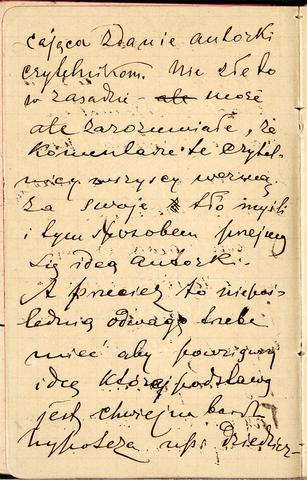 cająca zdanie autorki
czytelnikom. Nie złe to
w zasadzie – ale może
ale zarozumiałe, że
komentarze te czytel-
nicy wszyscy wezmą
za swoje tło myśli
i tym sposobem przejmą
się ideą autorki.
A przecież to niepoś-
lednią odwagę trzeba
mieć aby powziąwszy
ideę której podstawą
jest chwiejna bardzo
hypoteza np. dziedzicz-